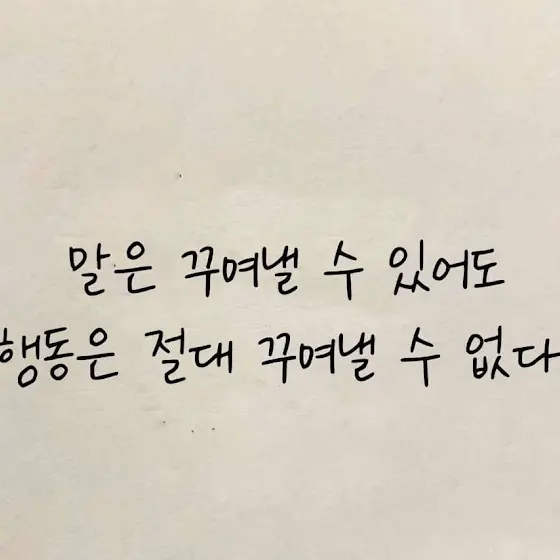 말은 꾸여낼 수 있어도
행동은 절대 꾸여낼 수 없다